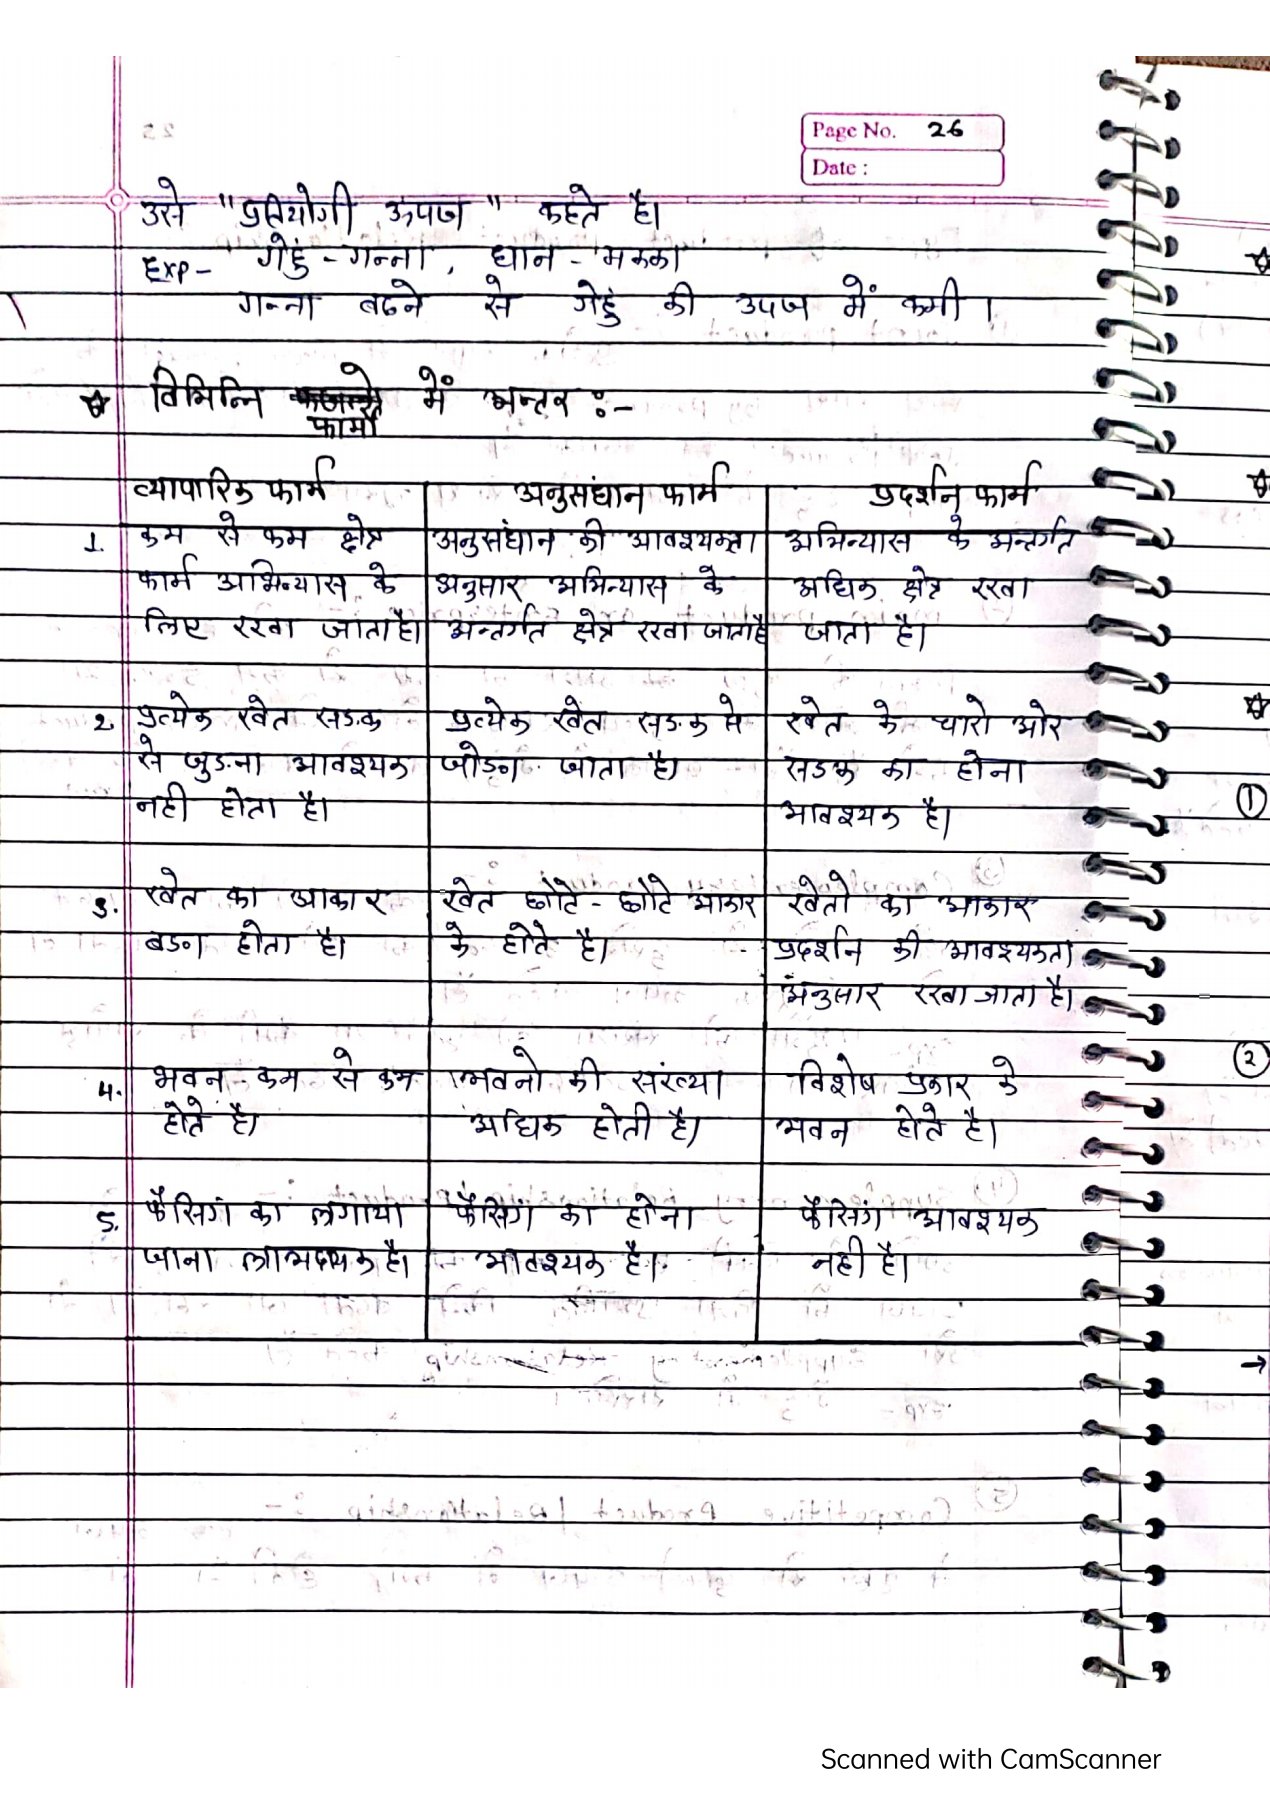 Page No. 26
Date :
उसे "प्रतियोगी ऊपज" कहते है।
Exp- गेहुं - गन्ना, धान - मक्का
गन्ना बढने से गेहुं की उपज में कमी।
विभिन्नि फार्मो में अन्तर :-
व्यापारिक फार्म अनुसंधान फार्म प्रदर्शन फार्म
1. कम से कम क्षेत्र अनुसंधान की आवश्यक्ता अभिन्यास के अन्तर्गत
फार्म अभिन्यास के अनुसार अभिन्यास के अधिक क्षेत्र रखा
लिए रखा जाता है। अन्तर्गत क्षेत्र रखा जाता है जाता है।
2. प्रत्येक खेत सडक प्रत्येक खेत सडक से खेत के चारो ओर
से जुडना आवश्यक जोडा जाता है। सडक का होना
नही होता है। आवश्यक है।
3. खेत का आकार खेत छोटे - छोटे आकार खेतो का आकार
बडा होता है। के होते है। प्रदर्शन की आवश्यकता
अनुसार रखा जाता है।
4. भवन कम से कम भवनो की संख्या विशेष प्रकार के
होते है। अधिक होती है। भवन होते है।
5. फैसिगं का लगाया फैसिगं का होना फैसिगं आवश्यक
जाना लाभदायक है। आवश्यक है। नही है।
1
2
Scanned with CamScanner